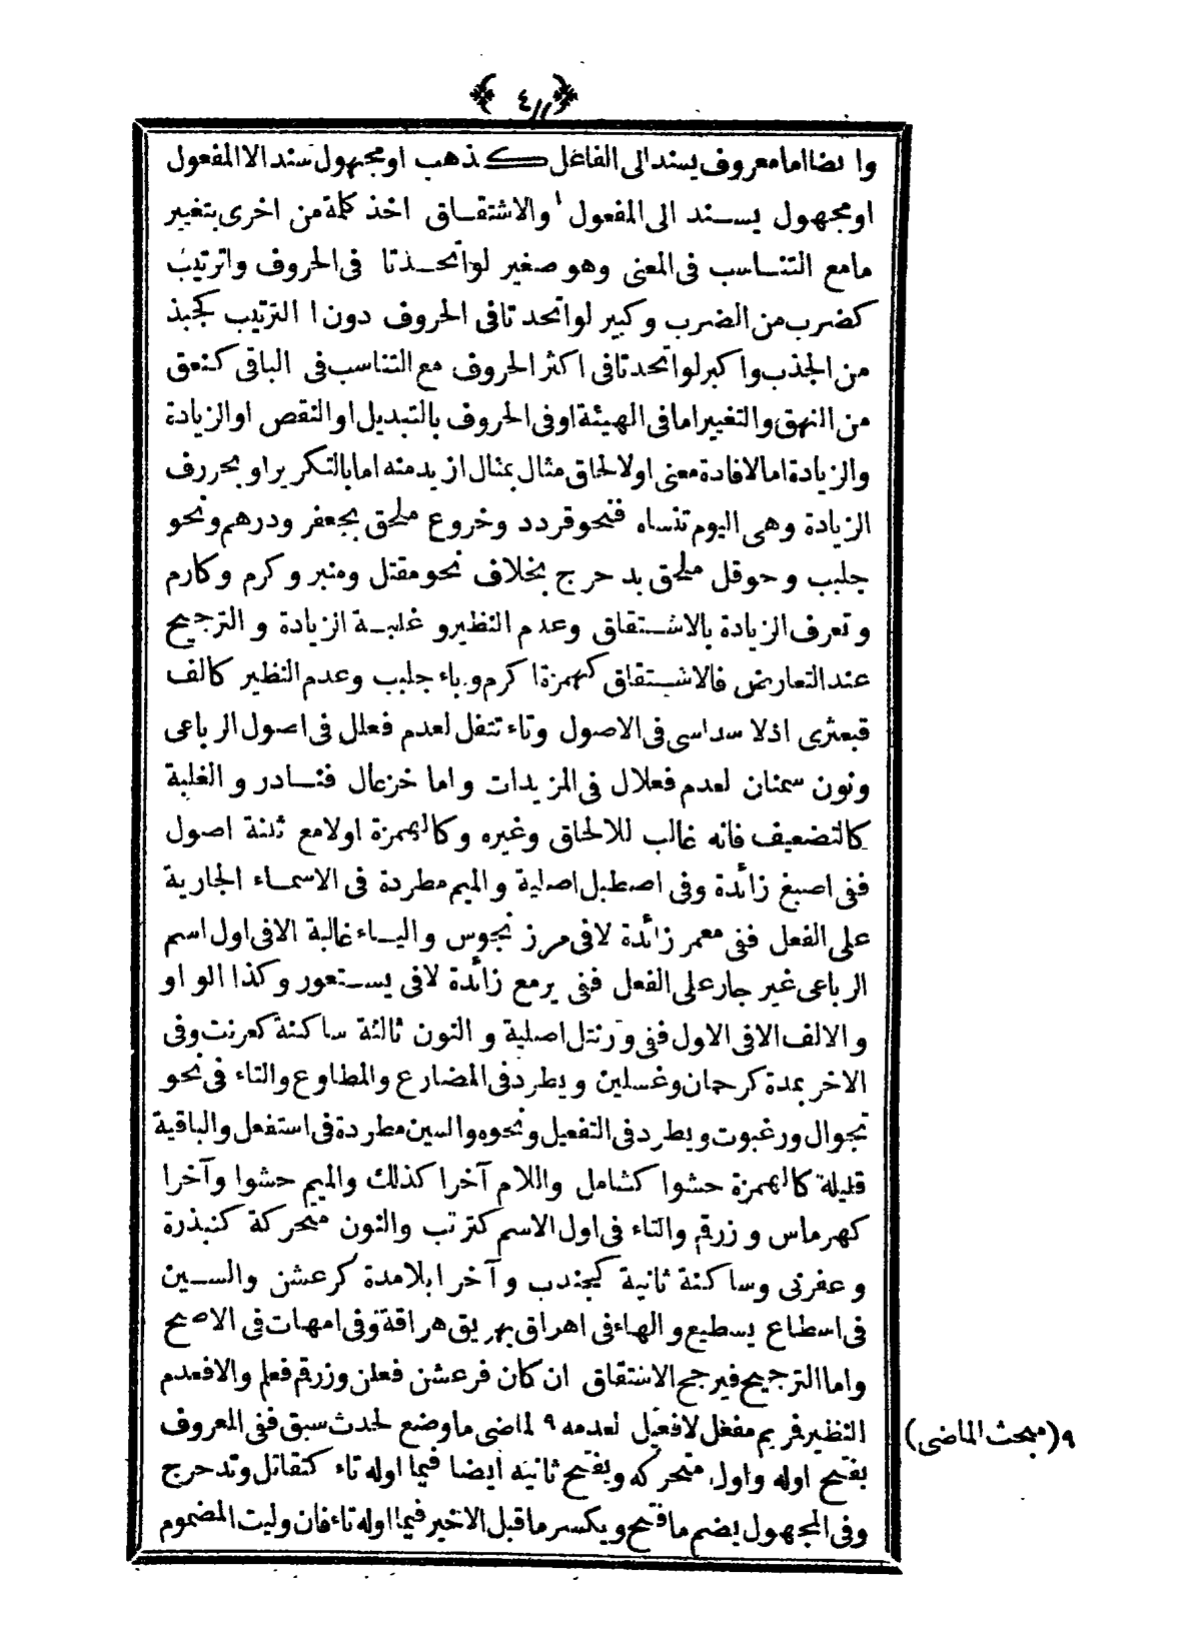 ﴿ ٤ ﴾
وايضا اما معروف يسند الى الفاعل كذهب او مجهول سند الا المفعول
او مجهول يسند الى المفعول والاشتقاق اخذ كلمة من اخرى بتغيير
ما مع التناسب فى المعنى وهو صغير لو اتحدتا فى الحروف واترتيب
كضرب من الضرب وكبير لو اتحدتا فى الحروف دون ا الترتيب كجبذ
من الجذب واكبر لو اتحدتا فى اكثر الحروف مع التناسب فى الباقى كنعق
من النهق والتغيير اما فى الهيئة او فى الحروف بالتبديل او النقص او الزيادة
والزيادة اما لافادة معنى او لالحاق مثال بمثال ازيد منه اما بالتكرير او بحررف
الزيادة وهى اليوم تنساه فنحو قردد وخروع ملحق بجعفر ودرهم ونحو
جلبب وحوقل ملحق بدحرج بخلاف نحو مقتل ومنبر وكرم وكارم
وتعرف الزيادة بالاشتقاق وعدم النظير وغلبة الزيادة والترجيح
عند التعارض فالاشتقاق كهمزة اكرم وباء جلبب وعدم النظير كالف
قبعثرى اذ لا سداسى فى الاصول وتاء تتفل لعدم فعلل فى اصول الرباعى
ونون سمنان لعدم فعلال فى المزيدات واما خزعال فنادر والغلبة
كالتضعيف فانه غالب للالحاق وغيره وكالهمزة اولا مع ثلثة اصول
ففى اصبغ زائدة وفى اصطبل اصلية والميم مطردة فى الاسماء الجارية
على الفعل ففى معمر زائدة لا فى مرزنجوس والياء غالبة الا فى اول اسم
الرباعى غير جار على الفعل ففى يرمع زائدة لا فى يستعور وكذا الواو
والالف الا فى الاول ففى ورنتل اصلية والنون ثالثة ساكنة كعرنت وفى
الاخر بمدة كرحمان وغسلين ويطرد فى المضارع والمطاوع والتاء فى نحو
تجوال ورغبوت ويطرد فى التفعيل ونحوه والسين مطردة فى استفعل والباقية
قليلة كالهمزة حشوا كشامل واللام آخرا كذلك والميم حشوا وآخرا
كهرماس وزرقم والتاء فى اول الاسم كترتب والنون متحركة كنبذرة
وعفرنى وساكنة ثانية كجندب وآخرا بلا مدة كرعشن والسين
فى اسطاع يسطيع والهاء فى اهراق يهريق هراقة وفى امهات فى الاصح
واما الترجيح فيرجح الاشتقاق ان كان فرعشن فعلن وزرقم فعلم والا فعدم
النظير فريم مفعل لا فعيل لعدمه ٩ لماضى ما وضع لحدث سبق ففى المعروف
بفتح اوله واول متحركه ويفتح ثانيه ايضا فيما اوله تاء كتقاتل وتدحرج
وفى المجهول يضم ما فتح ويكسر ما قبل الاخير فيما اوله تاء فان وليت المضموم
٩ (مبحث الماضى)